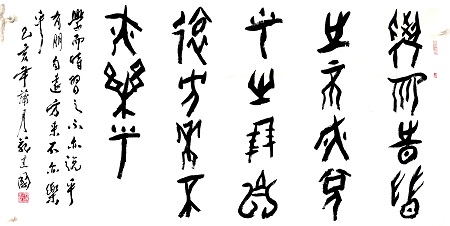 學而時習
之不亦說
乎有朋自
遠方來不
亦樂乎
學而時習之不亦說乎
有朋自遠方來不亦樂
乎
己亥年蒲月